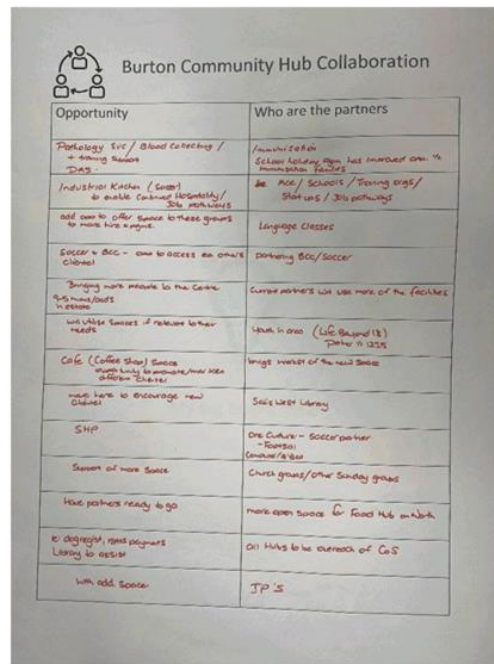 Burton Community Hub Collaboration
Opportunity
Who are the partners
Pathology Svc / Blood Collecting /
+ training rooms
DAS.
Immunisation
School holiday has improved
immunisation families
Industrial Kitchen
to enable Continued Hospitality /
Job pathways
ACE / Schools / Training orgs /
Job pathways
to offer space to these groups
to more hire
Language Classes
Soccer + BCC - to access other's
clientel
partnering BCC/Soccer
Bringing more people to the Centre
in estate
Current partners will use more of the facilities
will utilise Spaces if relevant to their
needs
Youth in area (Life Beyond 12)
Cafe (Coffee Shop) Space
opportunity to promote/
different Clientel
brings market of the new Space
more here to encourage new
Clientel
West Library
SHP
One Culture - Soccer partner
- Footsal
Support of more Space
Church groups/Other Sunday groups
Have partners ready to go
more open Space for Food Hub on North
ie: dog regist, payments
Library to assist
all Hubs to be outreach of CoS
with add. Space
JP's